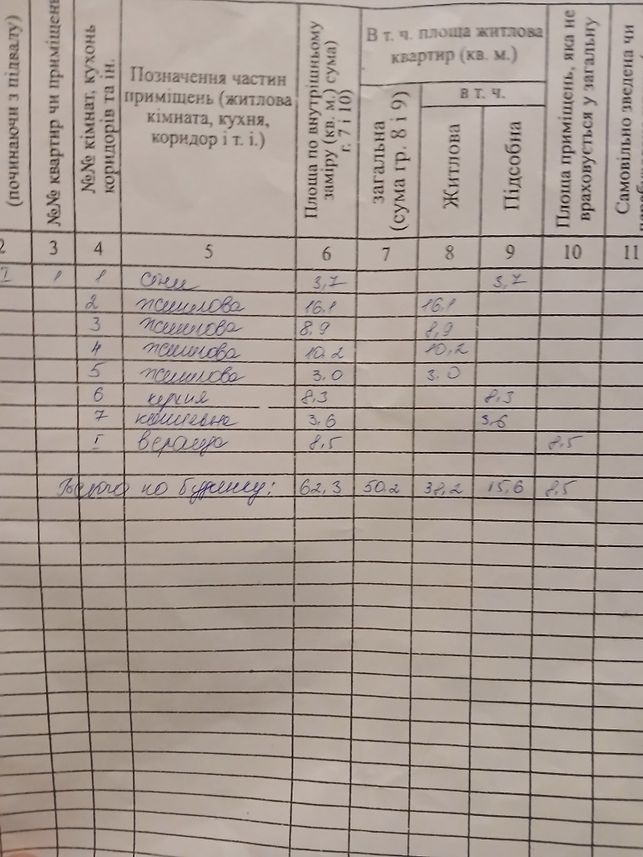 (починаючи з підвалу)
№№ квартир чи приміщень
№№ кімнат, кухонь
коридорів та ін.
Позначення частин
приміщень (житлова
кімната, кухня,
коридор і т. і.)
Площа по внутрішньому
заміру (кв. м.) (сума)
г. 7 і 10)
В т. ч. площа житлова
квартир (кв. м.)
загальна
(сума гр. 8 і 9)
в т. ч.
Житлова
Підсобна
Площа приміщень, яка не
враховується у загальну
Самовільно зведена чи
2 3 4 5 6 7 8 9 10 11
I 1 1 сіни 3,7 3,7
2 житлова 16,1 16,1
3 житлова 8,9 8,9
4 житлова 10.2 10,2
5 житлова 3.0 3.0
6 кухня 8,3 8,3
7 3.6 3,6
I веранда 8,5 8,5
Всього по будинку: 62,3 50.2 38,2 15,6 8,5